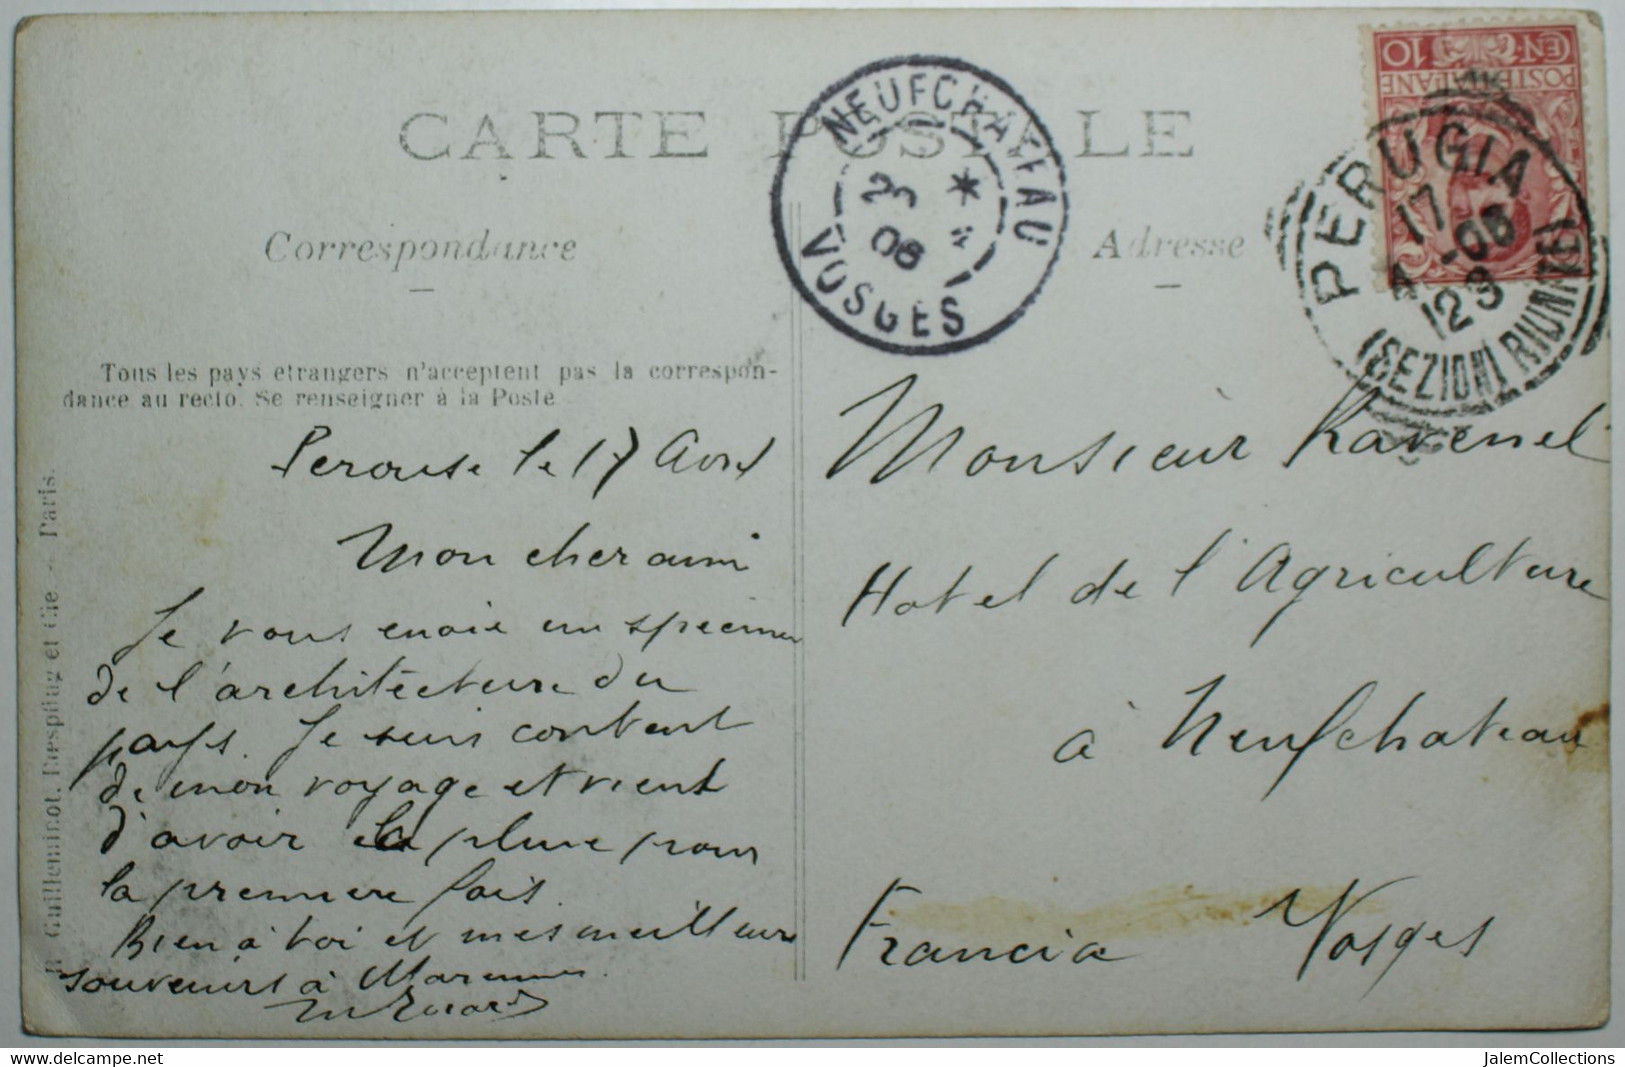 CARTE POSTALE
Correspondance
Adresse
Tous les pays etrangers n'acceptent pas la correspon-
dance au recto. Se renseigner à la Poste
R. Guilleminot, Bœspflug et Cie - Paris.
NEUFCHATEAU
23
06
VOSGES
CEN. 10
POSTE ITALIANE
PERUGIA
17
4 - 06
(SEZIONI RIUNITE)
Perouse le 17 Avril
Mon cher ami
Je vous envoie un specimen
de l'architecture du
pays. Je suis content
de mon voyage et vient
d'avoir la pluie pour
la premiere fois.
Bien à toi et mes meilleurs
souvenirs à
Monsieur Ravenel
Hotel de l'Agriculture
à Neufchateau
Francia Vosges
delcampe.net
JalemCollections